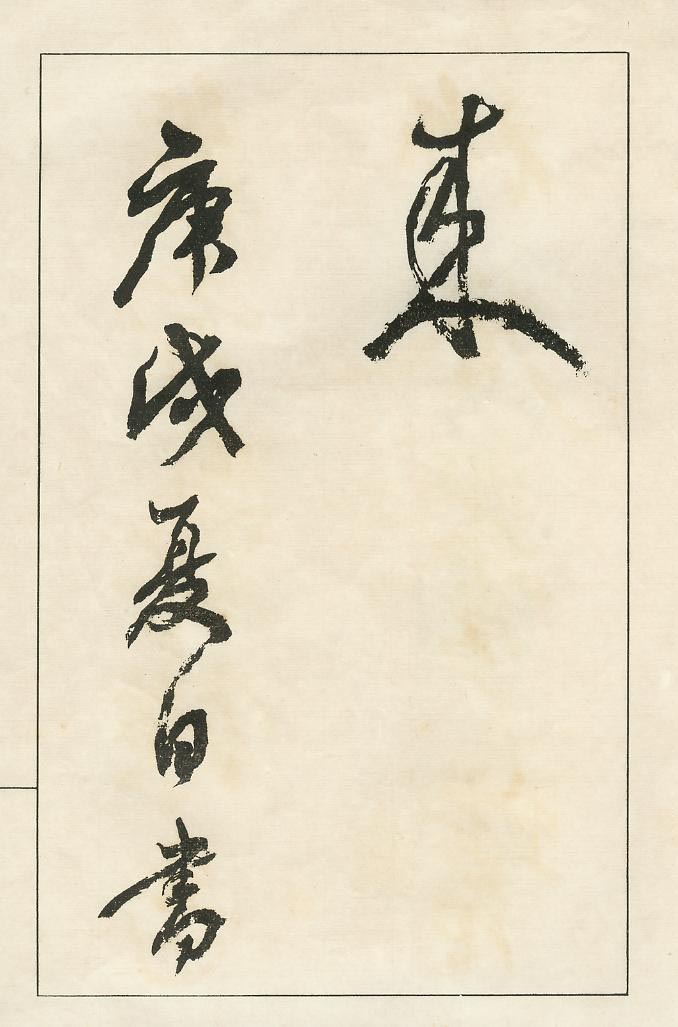 庚戌夏日書